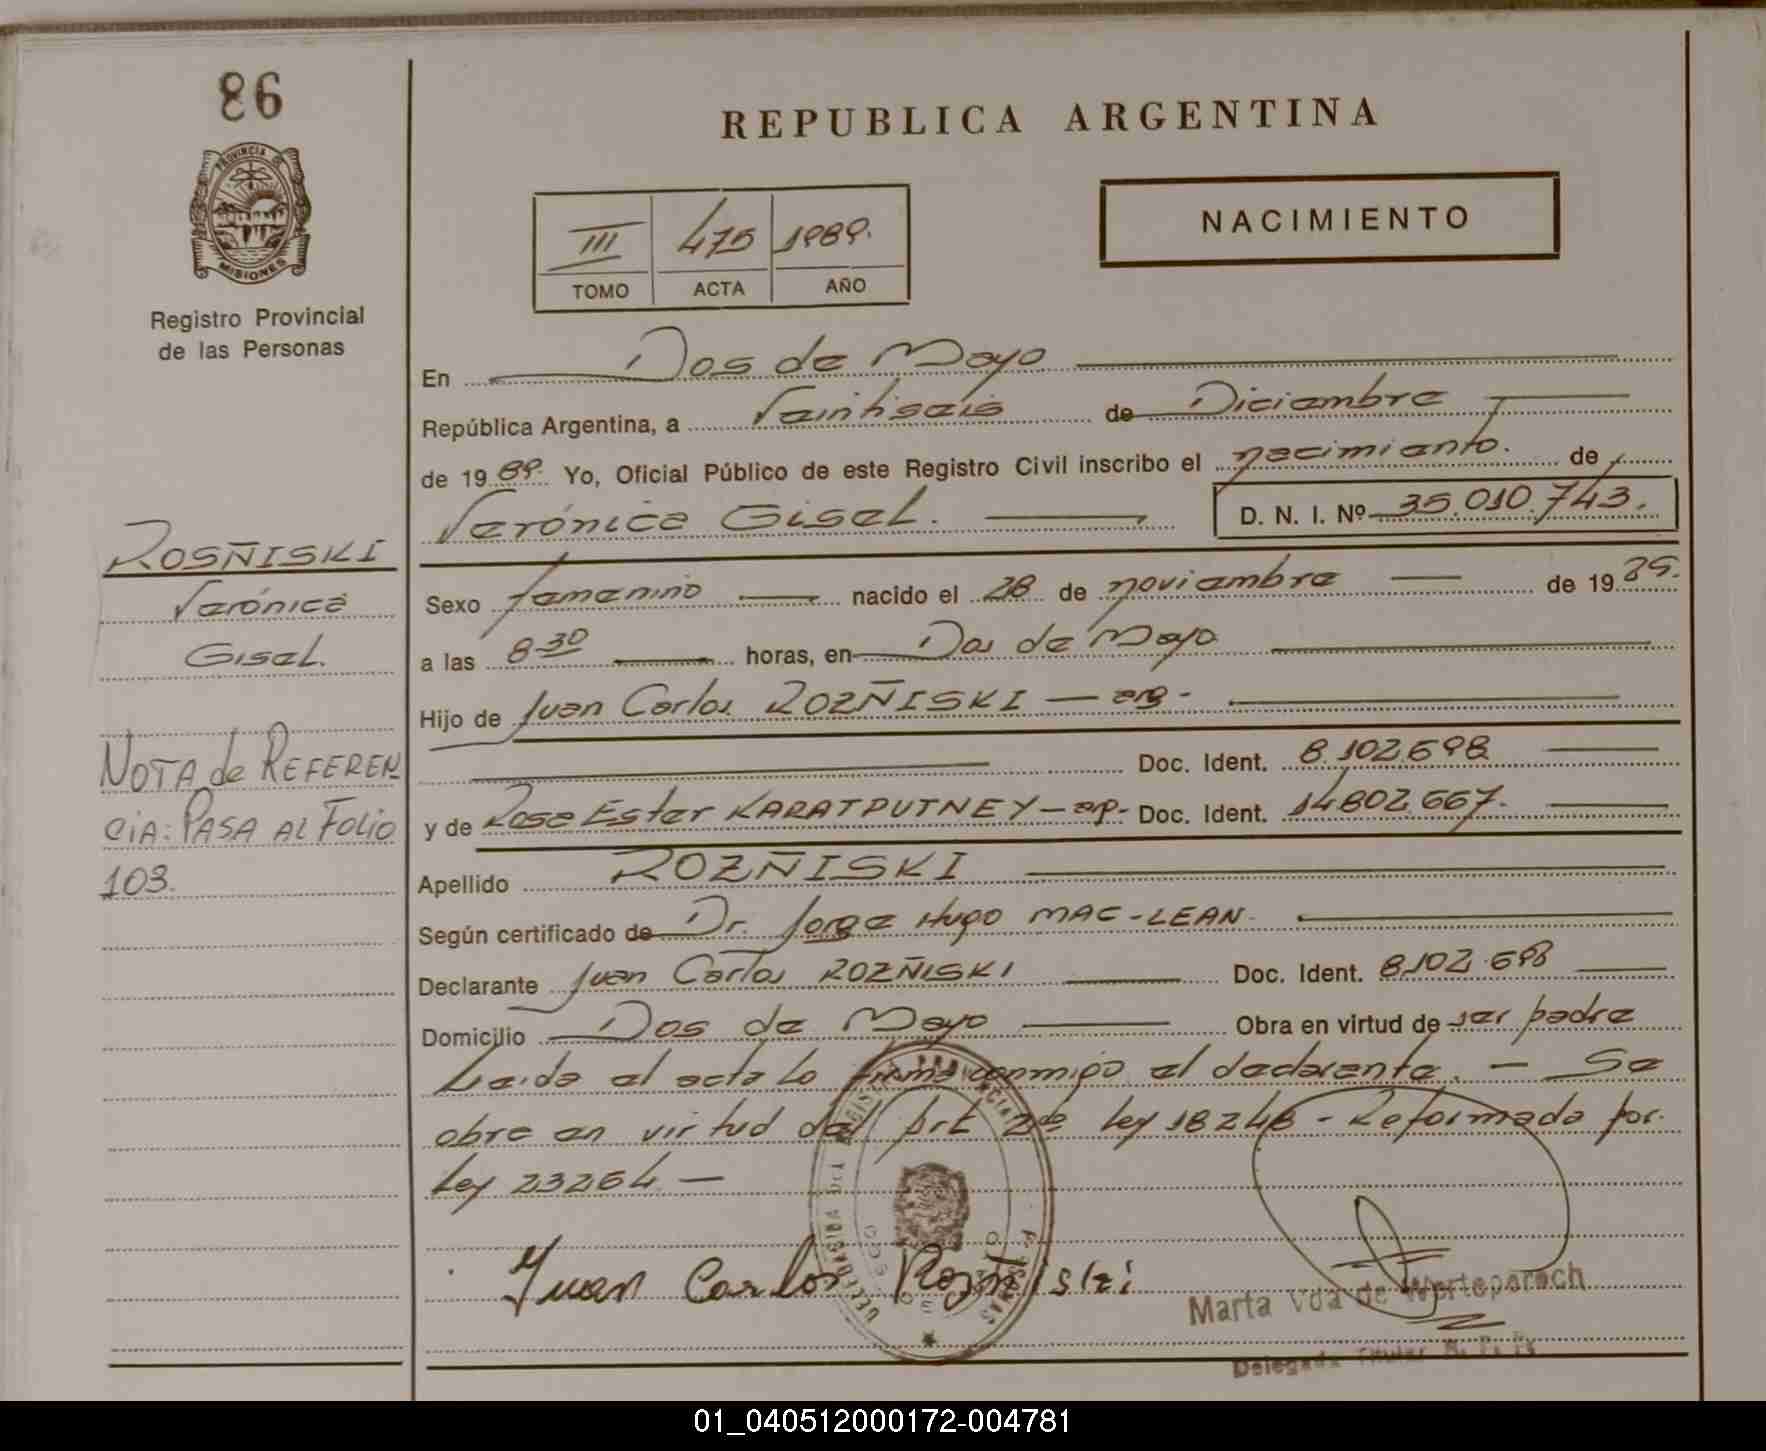 86
REPUBLICA ARGENTINA
PROVINCIA DE
MISIONES
III 475 1989.
TOMO ACTA AÑO
NACIMIENTO
Registro Provincial
de las Personas
En Dos de Mayo
República Argentina, a Veintiseis de Diciembre
de 1989. Yo, Oficial Público de este Registro Civil inscribo el nacimiento. de
Verónica Gisel. D. N. I. Nº 35.010.743.
ROSÑISKI
Verónica
Gisel.
Sexo femenino nacido el 28 de noviembre de 1989.
a las 8 30 horas, en Dos de Mayo
Hijo de Juan Carlos ROZÑISKI — arg -
Doc. Ident. 8.102.698
y de Rosa Ester KARATPUTNEY — ap - Doc. Ident. 14.802.667.
NOTA de REFEREN
CIA: PASA AL FOLIO
103.
Apellido ROZÑISKI
Según certificado de Dr. Jorge Hugo MAC-LEAN.
Declarante Juan Carlos ROZÑISKI Doc. Ident. 8.102.698
Domicilio Dos de Mayo Obra en virtud de ser padre
Leida el acta lo firma conmigo el declarante. — Se
obre en virtud del Art 2do ley 18248 - Reformada por.
Ley 23264 —
Juan Carlos Rozñiski
Marta Vda de Werteparoch
Delegada Titular R. P. P.
01_040512000172-004781